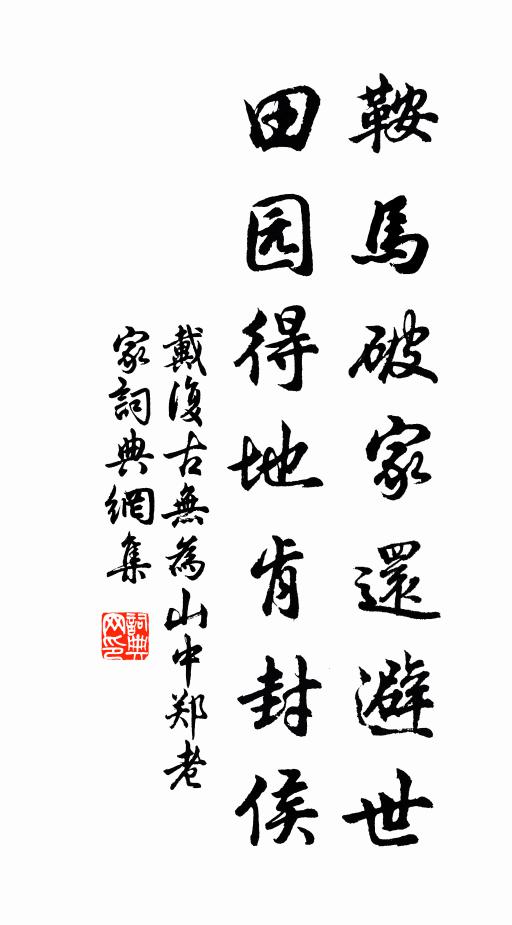 鞍馬破家還避世
田园得地肯封侯
戴復古無為山中郑老
家詞典網集
詞典网印